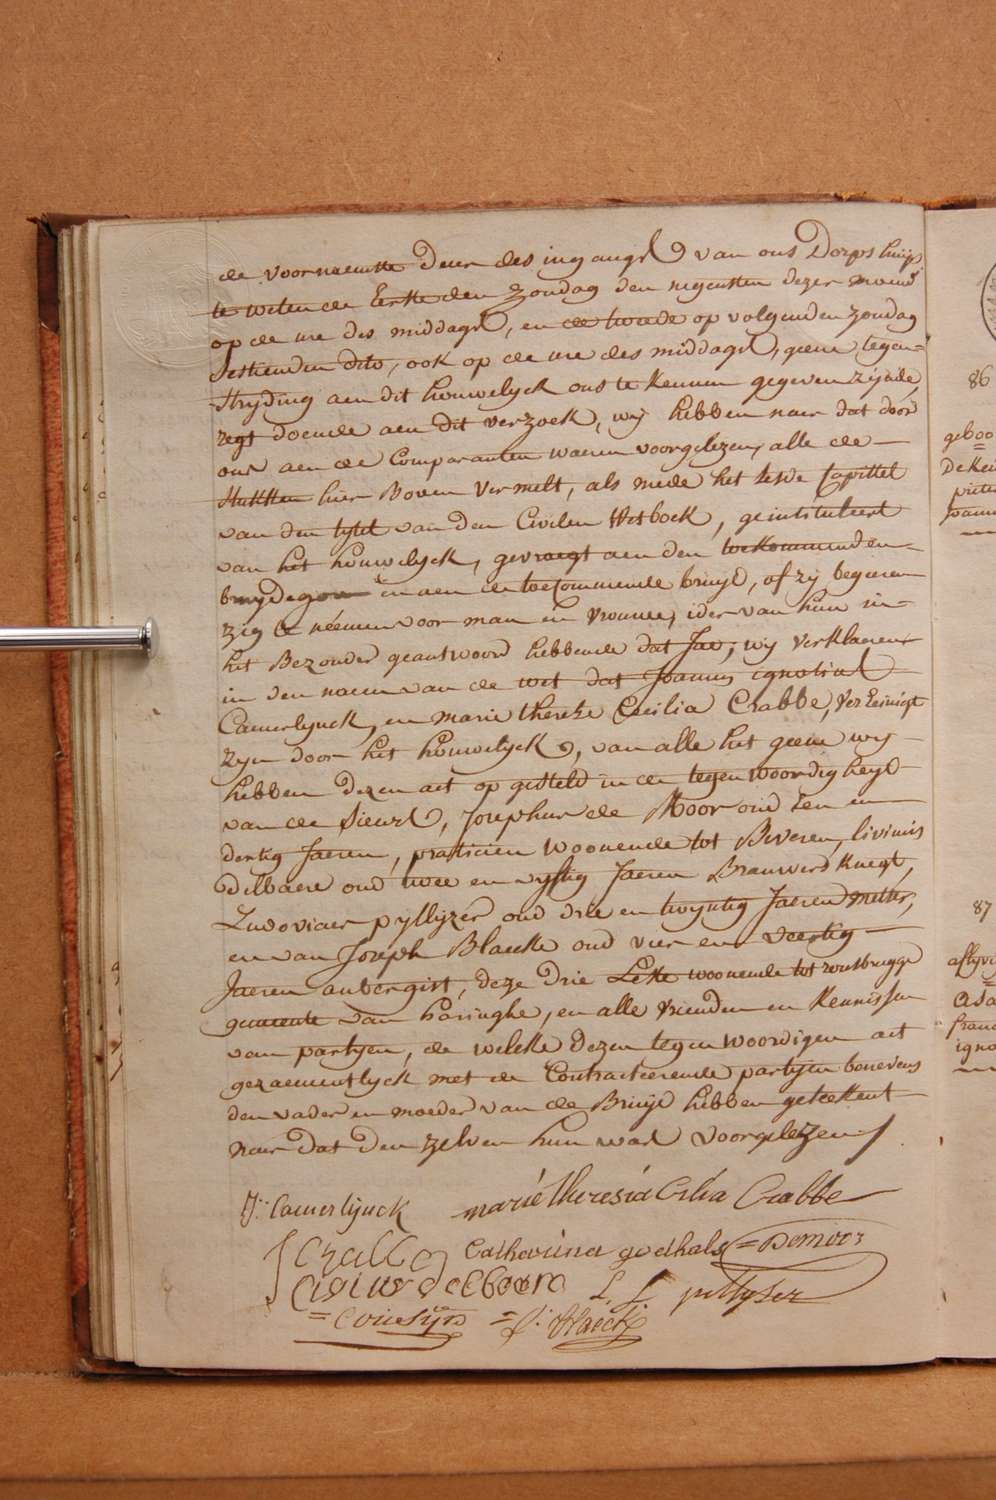 de voornaemste Deur des ingangs, van ons Dorps huijs
te weten de Eerste den Zondag den negensten dezer maend
op de ure des middags, en de twede op volgenden zondag
sestienden dito, ook op de ure des middags, geene tegen-
strijding aen dit houwelyck ons te kennen gegeven zijnde,
regt doende aen dit verzoek, wij hebben naer dat door
ons aen de Comparanten waeren voorgelezen, alle de
stukken hier Boven vermelt, als mede het seste Capittel
van den tytel van den Civilen Wetboek, geintituleert
van het houwelyck, gevraegt aen den toekommenden
bruydegom en aen de toecommende bruyd, of zij begeeren
zig te néemen voor man en vrouwe, ider van hun in
het Bezonder geantwoord hebbende dat Jae, wy verklaeren
in den naem van de wet dat Joannes ignatius
Camerlynck, en marie thereze Cecilia Crabbe, vereenigt
zyn door het houwelyck, van alle het geene wy
hebben dezen act op gesteld in de tegenwoordigheyd
van de Sieurs, Josephus de Moor oud een en
dertig Jaeren, praticien woonende tot Beveren, livinus
Delbaere oud twee en vyftig Jaeren Brauwers knegt,
Ludovicus pyllyzer oud drie en twyntig Jaeren
en van Joseph Blaecke oud vier en veertig
Jaeren aubergist, deze drie Leste woonende tot rousbrugge
gemeente van haringhe, en alle vrienden en kennissen
van partyen, de welcke dezen tegenwoordigen act
gezaementlyck met de Contracteerende partyen benevens
den vader en moeder van de Bruyd hebben geteekent
naer dat den zelven hun was voorgelezen
J: Camerlijnck marie theresia Cilia Crabbe
J Crabbe Catharina goethals = Demoor
Livinus delbaere L. L. pyllyser
= = J: Blaecke
86
geboo
DeKei
piete
Joann
87
aflyvi
Ada
franc
igna